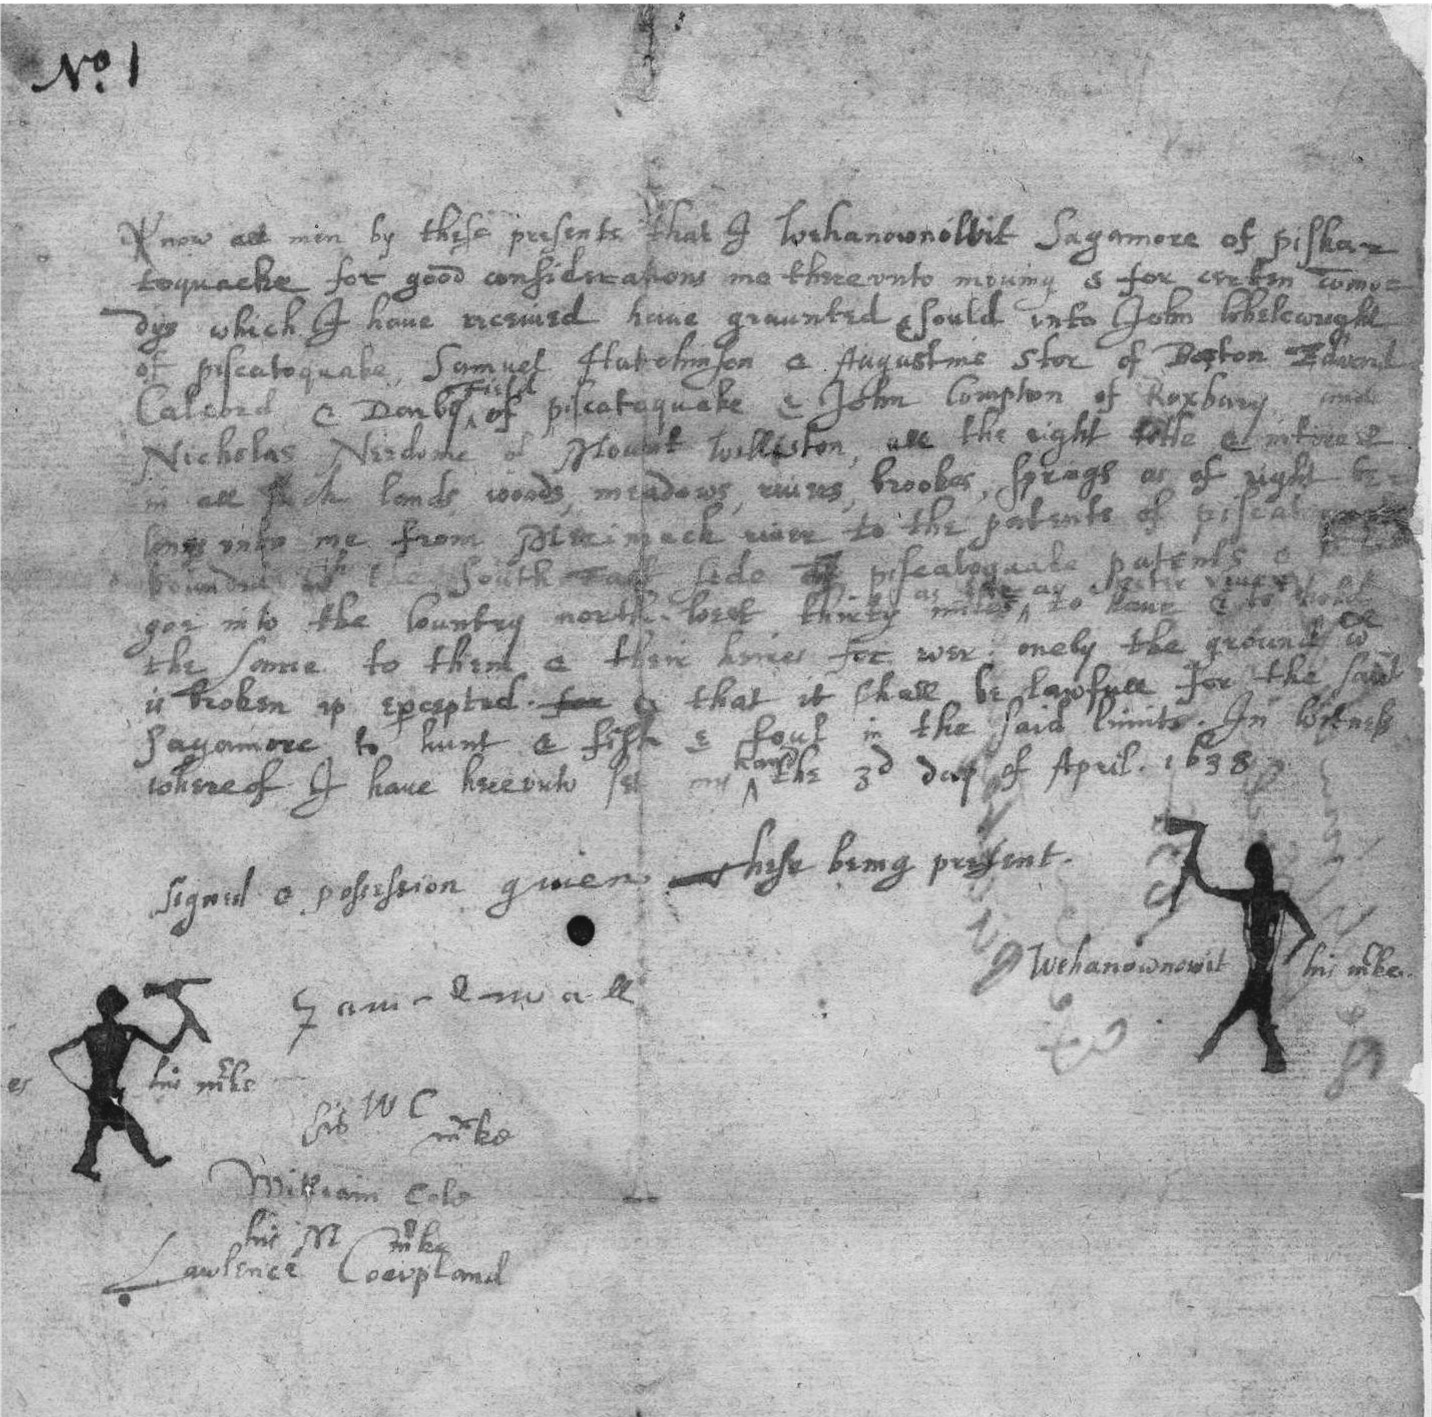 No. 1
Know all men by these presents that I Wehanownowit Sagamore of piskar
toquacke for good considerations me therevnto mouing & for certen comoe
dys which I haue receiued haue graunted & sould vnto John Whelewright
of piscatoquake, Samuel Hutchinson & Augustine Stor of Boston Edward
Calcord & Darby Field of piscatoquake & John Compton of Roxbury and
Nicholas Needome of Mount Walliston, all the right title & interest
in all such lands, woods, meadows, riuers, brookes, springs as of right be-
long vnto me from Merimack riuer to the patents of piscatoquake
bounded the South East side piscatoquake patents & so
goe into the Country north West thirty miles as far as oyster riuer to haue & to hold
the same to them & their heires for euer. onely the ground wch
is broken vp excepted. for & that it shall be lawfull for the said
Sagamore to hunt & fish & foul in the said limits. In Witness
whereof I haue herevnto set my hand the 3d day of April. 1638
signed & possession giuen these being present.
Wehanownowit his mrke.
his mrke
his W C mrke
William Cole
his M mrke
Lawlence Coevpland